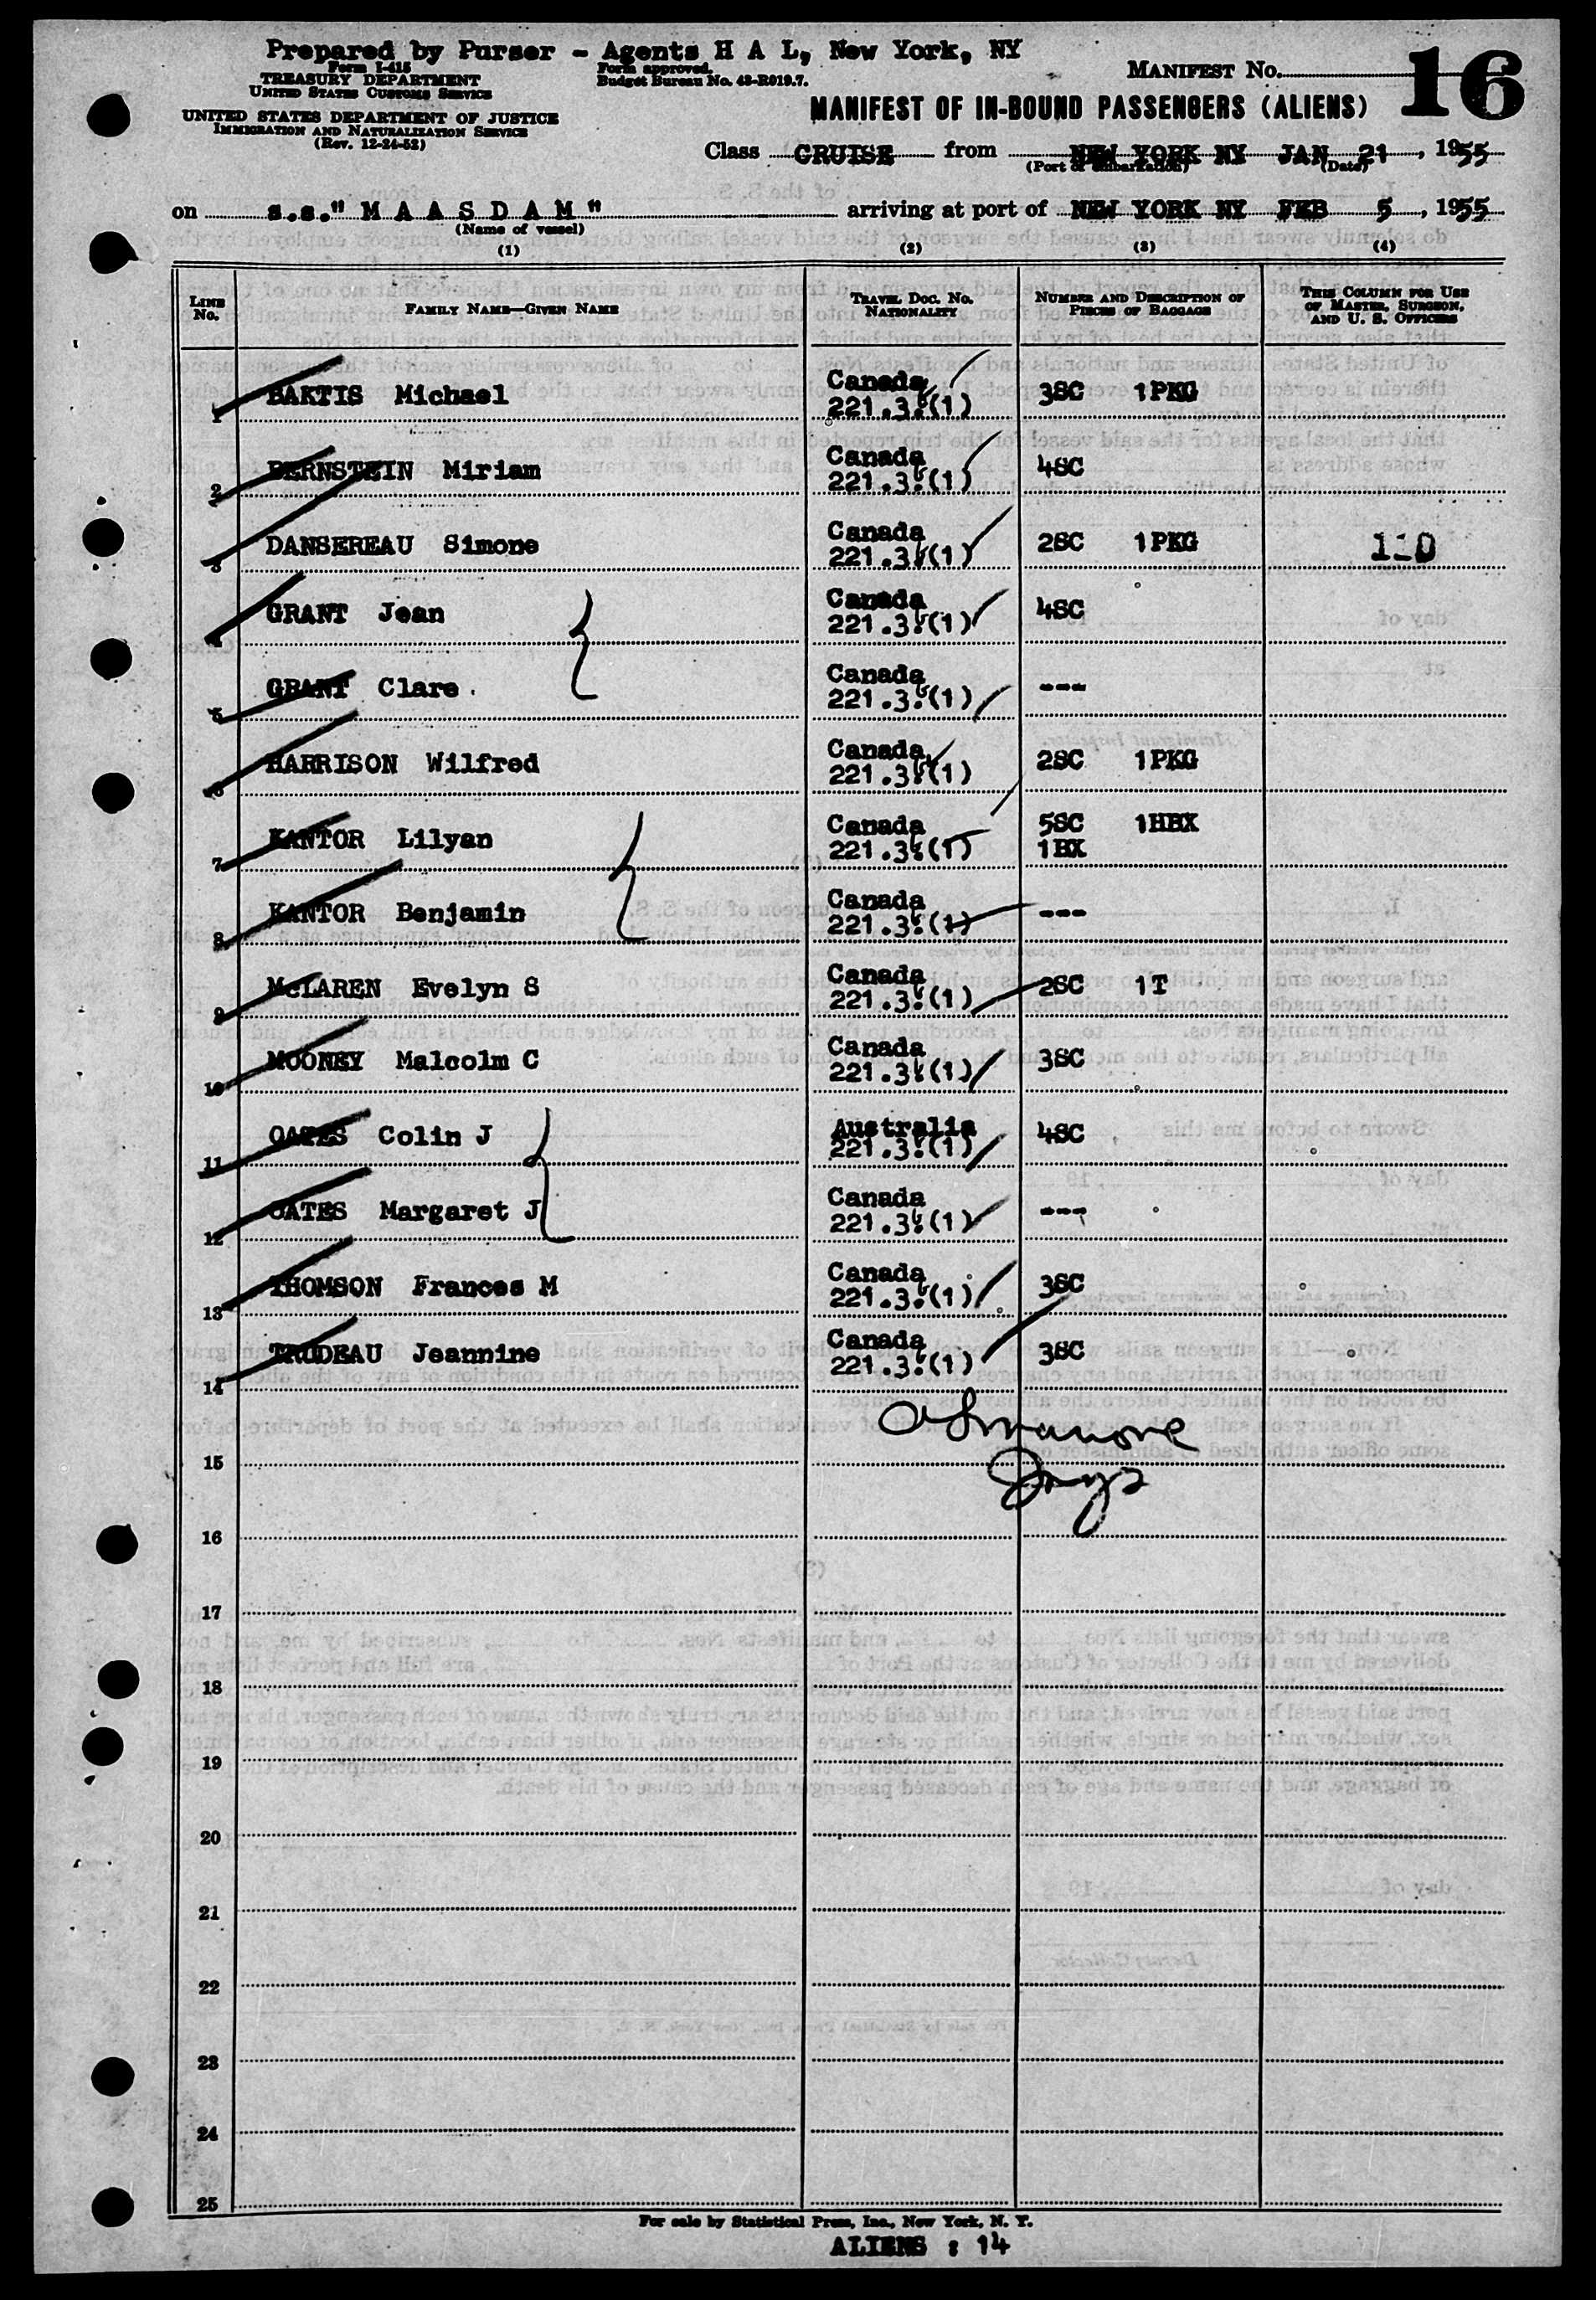 Prepared by Purser - Agents H A L, New York, NY
Form I-415
TREASURY DEPARTMENT
UNITED STATES CUSTOMS SERVICE
Form approved.
Budget Bureau No. 43-R019.7.
MANIFEST No. 16
UNITED STATES DEPARTMENT OF JUSTICE
IMMIGRATION AND NATURALIZATION SERVICE
(Rev. 12-24-52)
MANIFEST OF IN-BOUND PASSENGERS (ALIENS)
Class CRUISE from NEW YORK NY JAN 21, 1955
(Port of embarkation) (Date)
on s.s." M A A S D A M " arriving at port of NEW YORK NY FEB 5, 1955
(Name of vessel)
(1) (2) (3) (4)
LINE No. FAMILY NAME—GIVEN NAME TRAVEL DOC. No. NATIONALITY NUMBER AND DESCRIPTION OF PIECES OF BAGGAGE THIS COLUMN FOR USE OF MASTER, SURGEON, AND U. S. OFFICERS
1 BAKTIS Michael Canada 221.3.(1) 3SC 1PKG
2 BERNSTEIN Miriam Canada 221.3.(1) 4SC
3 DANSEREAU Simone Canada 221.3.(1) 2SC 1PKG 110
4 GRANT Jean Canada 221.3.(1) 4SC
5 GRANT Clare Canada 221.3.(1) ---
6 HARRISON Wilfred Canada 221.3.(1) 2SC 1PKG
7 KANTOR Lilyan Canada 221.3.(1) 5SC 1HBX 1BX
8 KANTOR Benjamin Canada 221.3.(1) ---
9 McLAREN Evelyn S Canada 221.3.(1) 2SC 1T
10 MOONEY Malcolm C Canada 221.3.(1) 3SC
11 OATES Colin J Australia 221.3.(1) 4SC
12 OATES Margaret J Canada 221.3.(1) ---
13 THOMSON Frances M Canada 221.3.(1) 3SC
14 TRUDEAU Jeannine Canada 221.3.(1) 3SC
15
16
17
18
19
20
21
22
23
24
25
For sale by Statistical Press, Inc., New York, N. Y.
ALIENS : 14